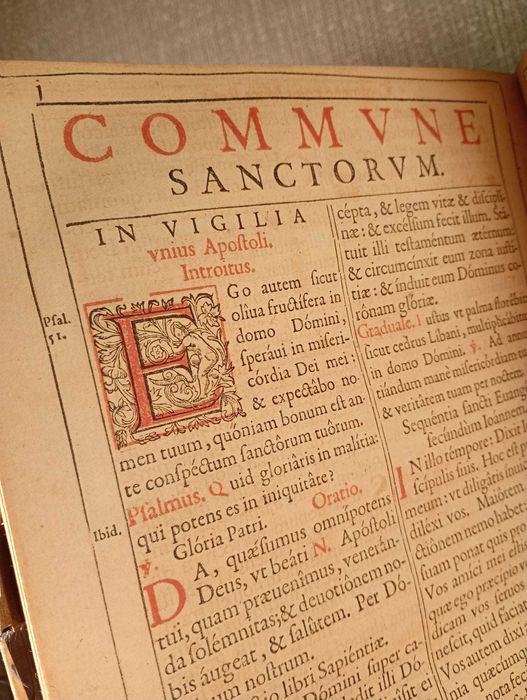 j
COMMVNE
SANCTORVM.
IN VIGILIA
vnius Apoſtoli.
Introitus.
Pſal.
51.
EGo autem ſicut
oliua fructífera in
domo Dómini,
ſperáui in miſeri-
córdia Dei mei:
& expectábo no-
men tuum, quóniam bonum eſt an-
te conſpéctum ſanctórum tuôrum.
Pſalmus. Quid gloriâris in malítia:
qui potens es in iniquitâte?
Ibid.
℣. Glória Patri.
Oratio.
DA, quæſumus omnípotens
Deus, vt beáti N. Apóſtoli
tui, quam præuenimus, venerán-
da ſolémnitas; & deuotiônem no-
bis áugeat, & ſalûtem. Per Dó-
num noſtrum.
io libri Sapiéntiæ.
Dómini ſuper ca-
dit illi Dó-
cépta, & legem vitæ & diſcipli-
næ: & excélſum fecit illum. Stá-
tuit illi teſtamentum ætérnum
& circumcínxit eum zona iuſti-
tiæ: & índuit eum Dóminus co-
rônam glóriæ.
Graduale. Iuſtus vt palma florébit
ſicut cedrus Líbani, multiplicábitur
in domo Dómini. ℣. Ad annun-
tiándum manè miſericórdiam
& veritátem tuam per noctem.
Sequéntia ſancti Euang
ſecúndum Ioánnem
IN illo témpore: Dixit I
ſcípulis ſuis. Hoc eſt p
meum: vt diligâtis inui
diléxi vos. Maiórem
ctiônem nemo habet
ſuam ponat quis pro
Vos amíci mei eſtis
quæ ego præcípio v
dicam vos ſeruos
neſcit, quid fáciat
Vos autem dixi
quæcúmq
nota feci